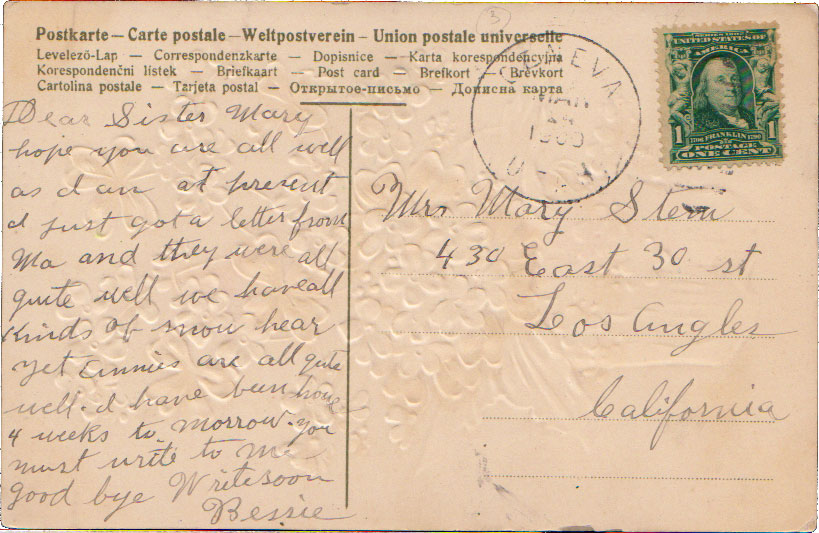 Postkarte – Carte postale – Weltpostverein – Union postale universelle
Levelező-Lap — Correspondenzkarte — Dopisnice — Karta korespondencyjna
Korespondenční lístek — Briefkaart — Post card — Brefkort — Brevkort
Cartolina postale — Tarjeta postal — Открытое-письмо — Дописна карта
3
GENEVA
MAR
1909
UTAH
SERIES 1902
UNITED STATES OF
AMERICA
1 1706 FRANKLIN 1790 1
POSTAGE
ONE CENT
Dear Sister Mary
hope you are all well
as I am at present
I just got a letter from
Ma and they were all
quite well we have all
kinds of snow hear
yet Annies are all quite
well. I have been home
4 weeks to morrow. you
must write to me
good bye Write soon
Bessie
Mrs Mary Stern
430 East 30 st
Los Angles
California